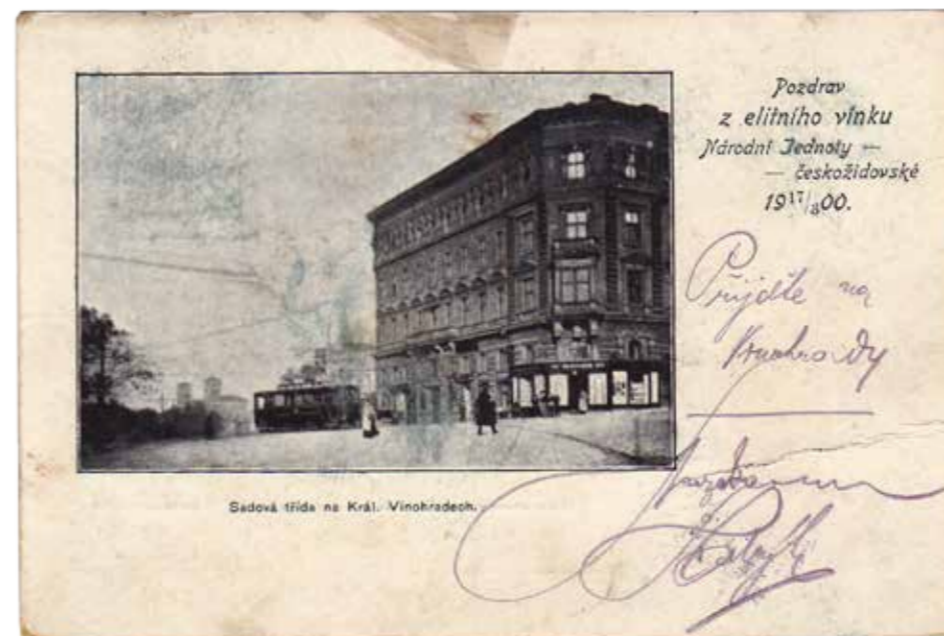 Pozdrav
z elitního vínku
Národní Jednoty —
— českožidovské
19¹⁷/₃00.
Přijďte na
Vinohrady
Sadová třída na Král. Vinohradech.